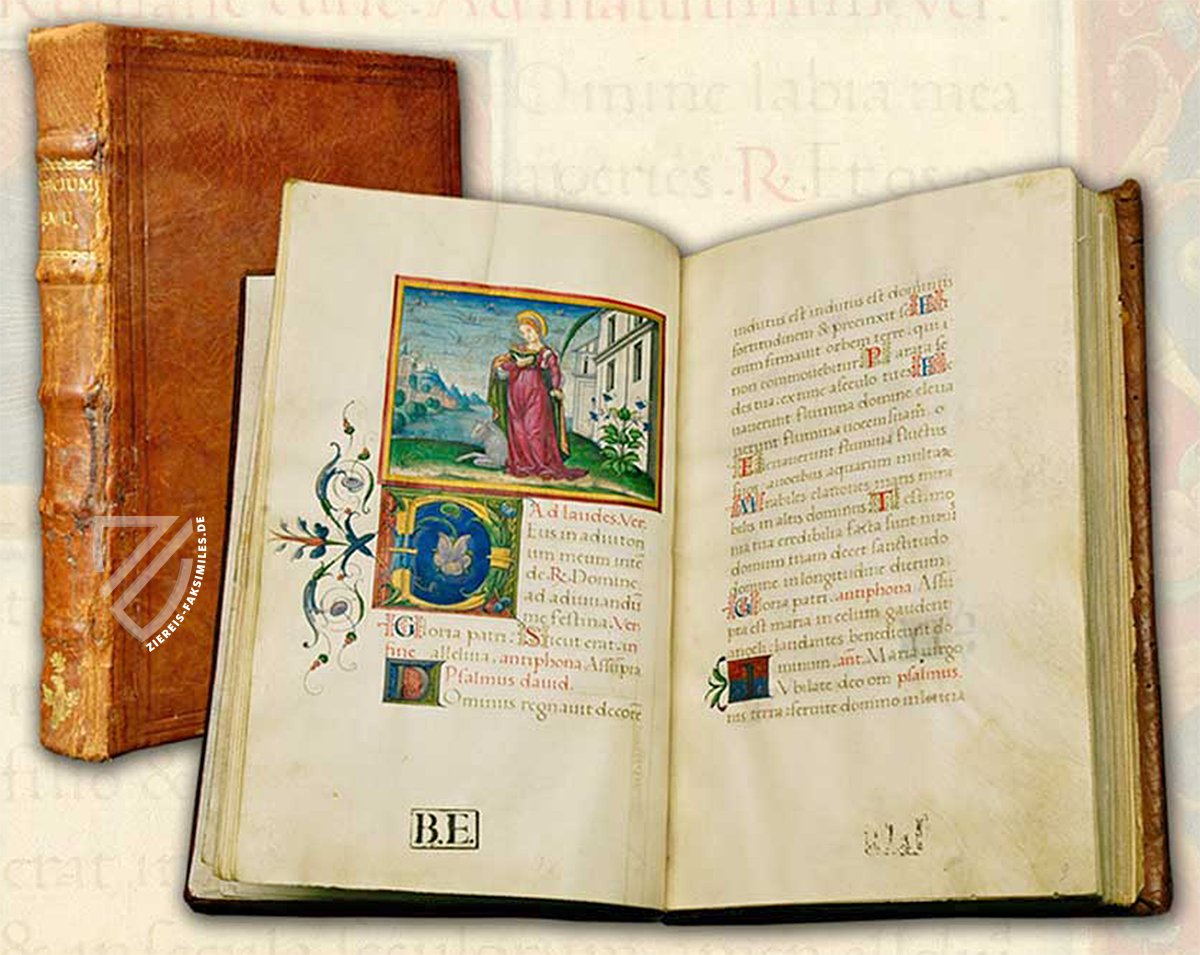 Romane cunc. Ad matutinum. Ver.
Omine labia mea
aperies. R. Et os
OFFICIUM
B.M.V.
ZIEREIS-FAKSIMILES.DE
Ad laudes. Ver.
Eus in adiutori
um meum inte
de. R. Domine
ad adiuuandū
me festina. Ver.
Gloria patri. Sicut erat. in
fine alleluia. antiphona Assūpta
Psalmus dauid.
DOminus regnauit decorē
B.E.
indutus est indutus est dominus
fortitudinem & precinxit se. E
enim firmauit orbem terre: qui
non commouebitur. Parata se
des tua: ex tunc a seculo tu es. E
leuauerunt flumina domine: eleua
uerunt flumina uocem suam. E
leuauerunt flumina fluctus
a uocibus aquarum multarū
Mirabiles elationes maris mira
bilis in altis dominus. Testimo
nia tua credibilia facta sunt nimis
domum tuam decet sanctitudo
domine in longitudine dierum.
Gloria patri. antiphona Assū
pta est maria in celum gaudent
angeli: laudantes benedicunt do
minum. ant. Maria uirgo
IVbilate deo om psalmus.
nis terra: seruite domino in leticia